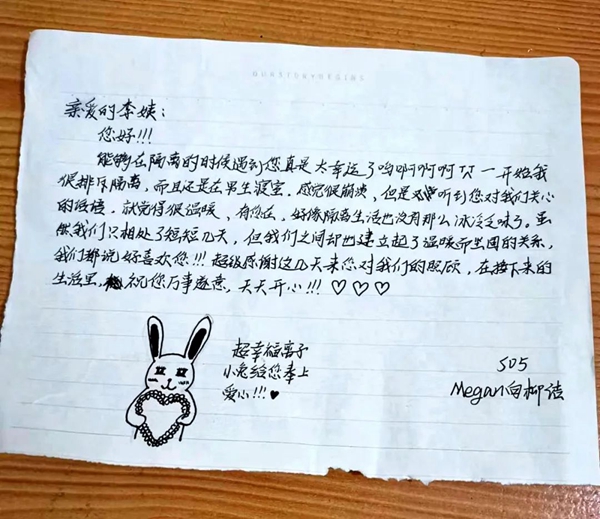 亲爱的李姨：
您好!!!
能够在隔离的时候遇到您真是太幸运了呜啊啊啊 一开始我
很排斥隔离，而且还是在男生寝室，感觉很崩溃，但是听到您对我们关心
的话语，就觉得很温暖，有您在，好像隔离生活也没有那么冰冷乏味了。虽
然我们只相处了短短几天，但我们之间却也建立起了温暖而坚固的关系，
我们都说好喜欢您!!! 超级感谢这几天来您对我们的照顾，在接下来的
生活里，祝您万事遂意，天天开心!!! ♡♡♡
超幸福离子
小兔给您奉上
爱心!!!♥
505
Megan白柳洁